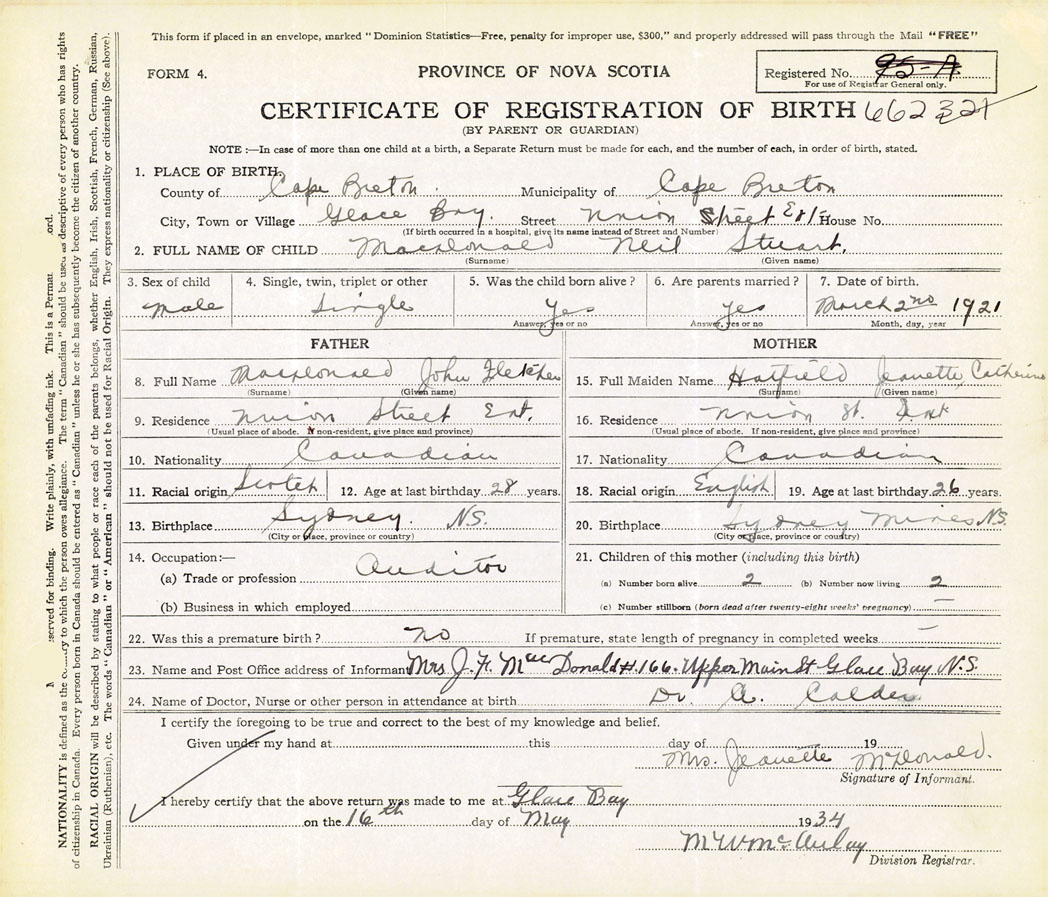 This form if placed in an envelope, marked "Dominion Statistics—Free, penalty for improper use, $300," and properly addressed will pass through the Mail "FREE"
FORM 4.
PROVINCE OF NOVA SCOTIA
Registered No. 95-A
For use of Registrar General only.
CERTIFICATE OF REGISTRATION OF BIRTH 662321
(BY PARENT OR GUARDIAN)
NOTE :—In case of more than one child at a birth, a Separate Return must be made for each, and the number of each, in order of birth, stated.
1. PLACE OF BIRTH,
County of Cape Breton. Municipality of Cape Breton
City, Town or Village Glace Bay. Street Union Street Ext House No.
(If birth occurred in a hospital, give its name instead of Street and Number)
2. FULL NAME OF CHILD MacDonald Neil Stuart.
(Surname) (Given name)
3. Sex of child Male
4. Single, twin, triplet or other Single
5. Was the child born alive? Yes
Answer, yes or no
6. Are parents married? Yes
Answer, yes or no
7. Date of birth. March 2nd 1921
Month, day, year
FATHER
8. Full Name MacDonald John Fletcher
(Surname) (Given name)
9. Residence Union Street Ext.
(Usual place of abode. If non-resident, give place and province)
10. Nationality Canadian
11. Racial origin Scotch 12. Age at last birthday 28 years.
13. Birthplace Sydney. N.S.
(City or place, province or country)
14. Occupation:—
(a) Trade or profession Auditor
(b) Business in which employed
MOTHER
15. Full Maiden Name Hatfield Jeanette Catherine
(Surname) (Given name)
16. Residence Union St. Ext
(Usual place of abode. If non-resident, give place and province)
17. Nationality Canadian
18. Racial origin English 19. Age at last birthday 26 years.
20. Birthplace Sydney Mines N.S.
(City or place, province or country)
21. Children of this mother (including this birth)
(a) Number born alive 2 (b) Number now living 2
(c) Number stillborn (born dead after twenty-eight weeks' pregnancy) —
22. Was this a premature birth? no If premature, state length of pregnancy in completed weeks —
23. Name and Post Office address of Informant Mrs J. F. MacDonald #166. Upper Main St Glace Bay N.S.
24. Name of Doctor, Nurse or other person in attendance at birth Dr. A. Calder
I certify the foregoing to be true and correct to the best of my knowledge and belief.
Given under my hand at this day of 19
Mrs. Jeanette McDonald.
Signature of Informant.
I hereby certify that the above return was made to me at Glace Bay
on the 16th day of May 1934
M W McAulay
Division Registrar.
served for binding. Write plainly, with unfading ink. This is a Perma ord.
NATIONALITY is defined as the to which the person owes allegiance. The term "Canadian" should be used as descriptive of every person who has rights
of citizenship in Canada. Every person born in Canada should be entered as "Canadian" unless he or she has subsequently become the citizen of another country.
RACIAL ORIGIN will be described by stating to what people or race each of the parents belongs, whether English, Irish, Scottish, French, German, Russian,
Ukrainian (Ruthenian), etc. The words "Canadian" or "American" should not be used for Racial Origin. They express nationality or citizenship (See above).